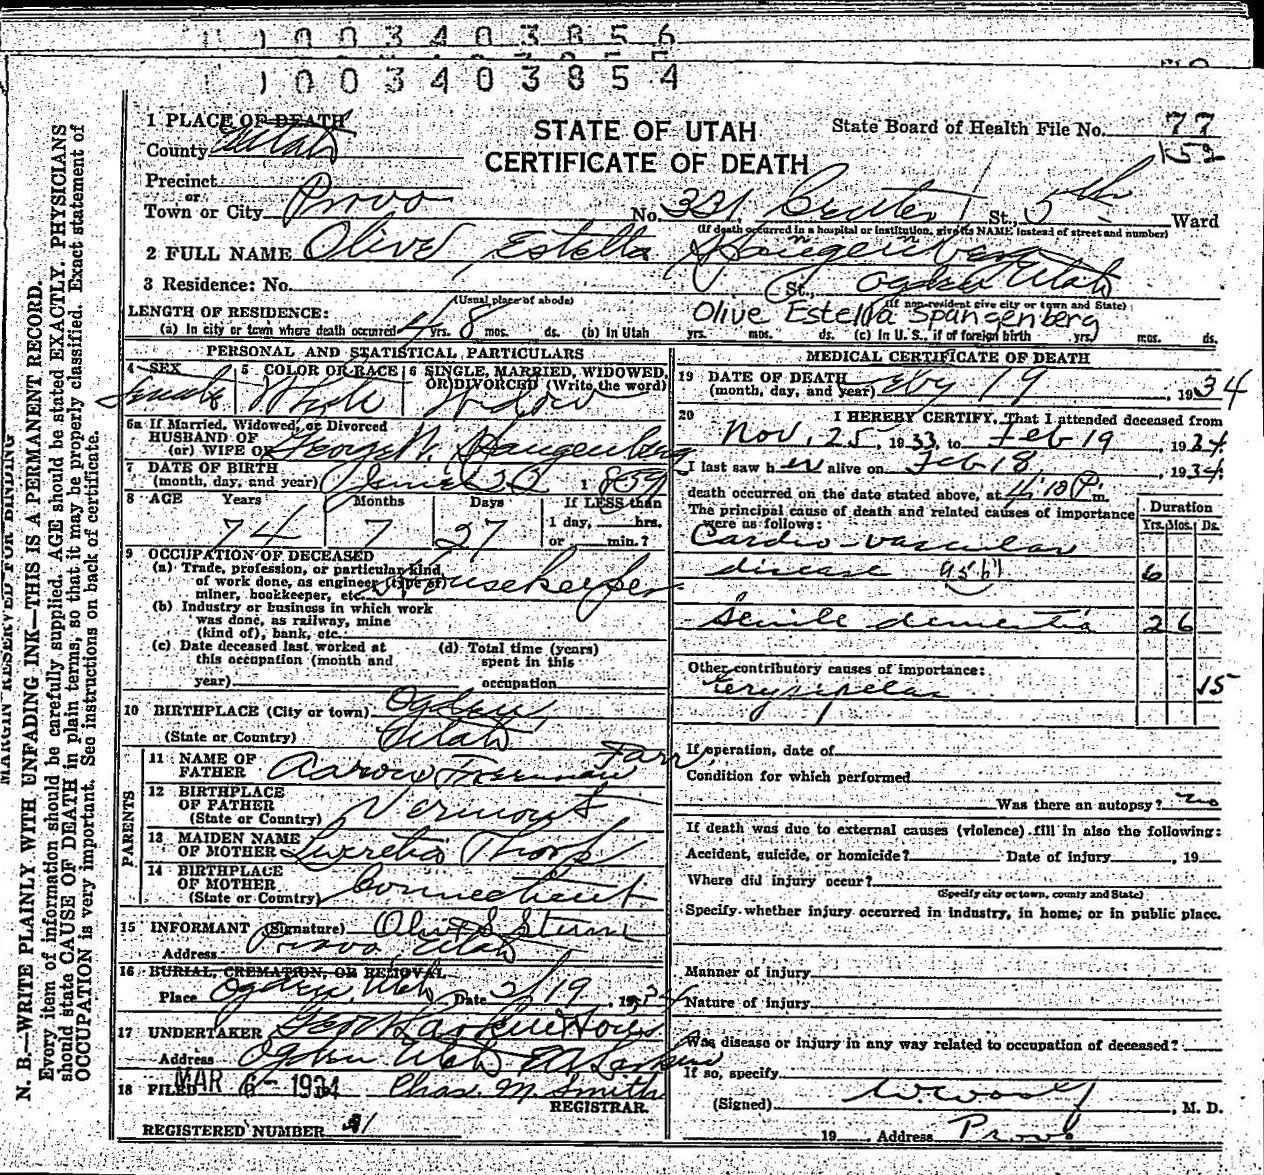 1003403856
1003403854
STATE OF UTAH
CERTIFICATE OF DEATH
State Board of Health File No. 77
152
1 PLACE OF DEATH
County Utah
Precinct
or
Town or City Provo No. 331 Center St., 5th Ward
(If death occurred in a hospital or institution, give its NAME instead of street and number)
2 FULL NAME Olive Estella Spangenberg
3 Residence: No. St., Ogden Utah
(Usual place of abode) (If non-resident give city or town and State)
Olive Estella Spangenberg
LENGTH OF RESIDENCE:
(a) In city or town where death occurred 4 yrs. 8 mos. ds. (b) In Utah yrs. mos. ds. (c) In U. S., if of foreign birth yrs. mos. ds.
PERSONAL AND STATISTICAL PARTICULARS
4 SEX 5 COLOR OR RACE 6 SINGLE, MARRIED, WIDOWED, OR DIVORCED (Write the word)
Female White Widow
6a If Married, Widowed, or Divorced
HUSBAND OF
(or) WIFE OF George W. Spangenberg
7 DATE OF BIRTH
(month, day, and year) June 22 1859
8 AGE Years Months Days If LESS than
74 7 27 1 day, hrs.
or min.?
9 OCCUPATION OF DECEASED
(a) Trade, profession, or particular kind
of work done, as engineer (type of)
miner, bookkeeper, etc. Housekeeper
(b) Industry or business in which work
was done, as railway, mine
(kind of), bank, etc.
(c) Date deceased last worked at
this occupation (month and
year)
(d) Total time (years)
spent in this
occupation
10 BIRTHPLACE (City or town) Ogden
(State or Country) Utah
PARENTS
11 NAME OF
FATHER Aaron Freeman Farr
12 BIRTHPLACE
OF FATHER
(State or Country) Vermont
13 MAIDEN NAME
OF MOTHER Lucretia Thorp
14 BIRTHPLACE
OF MOTHER
(State or Country) Connecticut
15 INFORMANT (Signature) Olive S Sturm
Address Provo Utah
16 BURIAL, CREMATION, OR REMOVAL
Place Ogden, Utah Date 2/19, 1934
17 UNDERTAKER
Address Ogden Utah
18 FILED MAR 6 - 1934 Chas. M. Smith
REGISTRAR.
REGISTERED NUMBER
MEDICAL CERTIFICATE OF DEATH
19 DATE OF DEATH
(month, day, and year) Feby 19, 1934
20 I HEREBY CERTIFY, That I attended deceased from
Nov. 25, 1933, to Feb 19, 1934.
I last saw her alive on Feb 18, 1934.
death occurred on the date stated above, at 4:10 P m.
The principal cause of death and related causes of importance
were as follows:
Duration
Yrs. Mos. Ds.
Cardio-vascular
disease 6
Senile dementia 2 6
Other contributory causes of importance:
erysipelas 15
If operation, date of
Condition for which performed
Was there an autopsy? no
If death was due to external causes (violence) fill in also the following:
Accident, suicide, or homicide? Date of injury , 19
Where did injury occur?
(Specify city or town, county and State)
Specify whether injury occurred in industry, in home, or in public place.
Manner of injury
Nature of injury
Was disease or injury in any way related to occupation of deceased?
If so, specify
(Signed) , M. D.
19 Address Provo
MARGIN RESERVED FOR BINDING
N. B.—WRITE PLAINLY WITH UNFADING INK—THIS IS A PERMANENT RECORD.
Every item of information should be carefully supplied. AGE should be stated EXACTLY. PHYSICIANS
should state CAUSE OF DEATH in plain terms, so that it may be properly classified. Exact statement of
OCCUPATION is very important. See instructions on back of certificate.